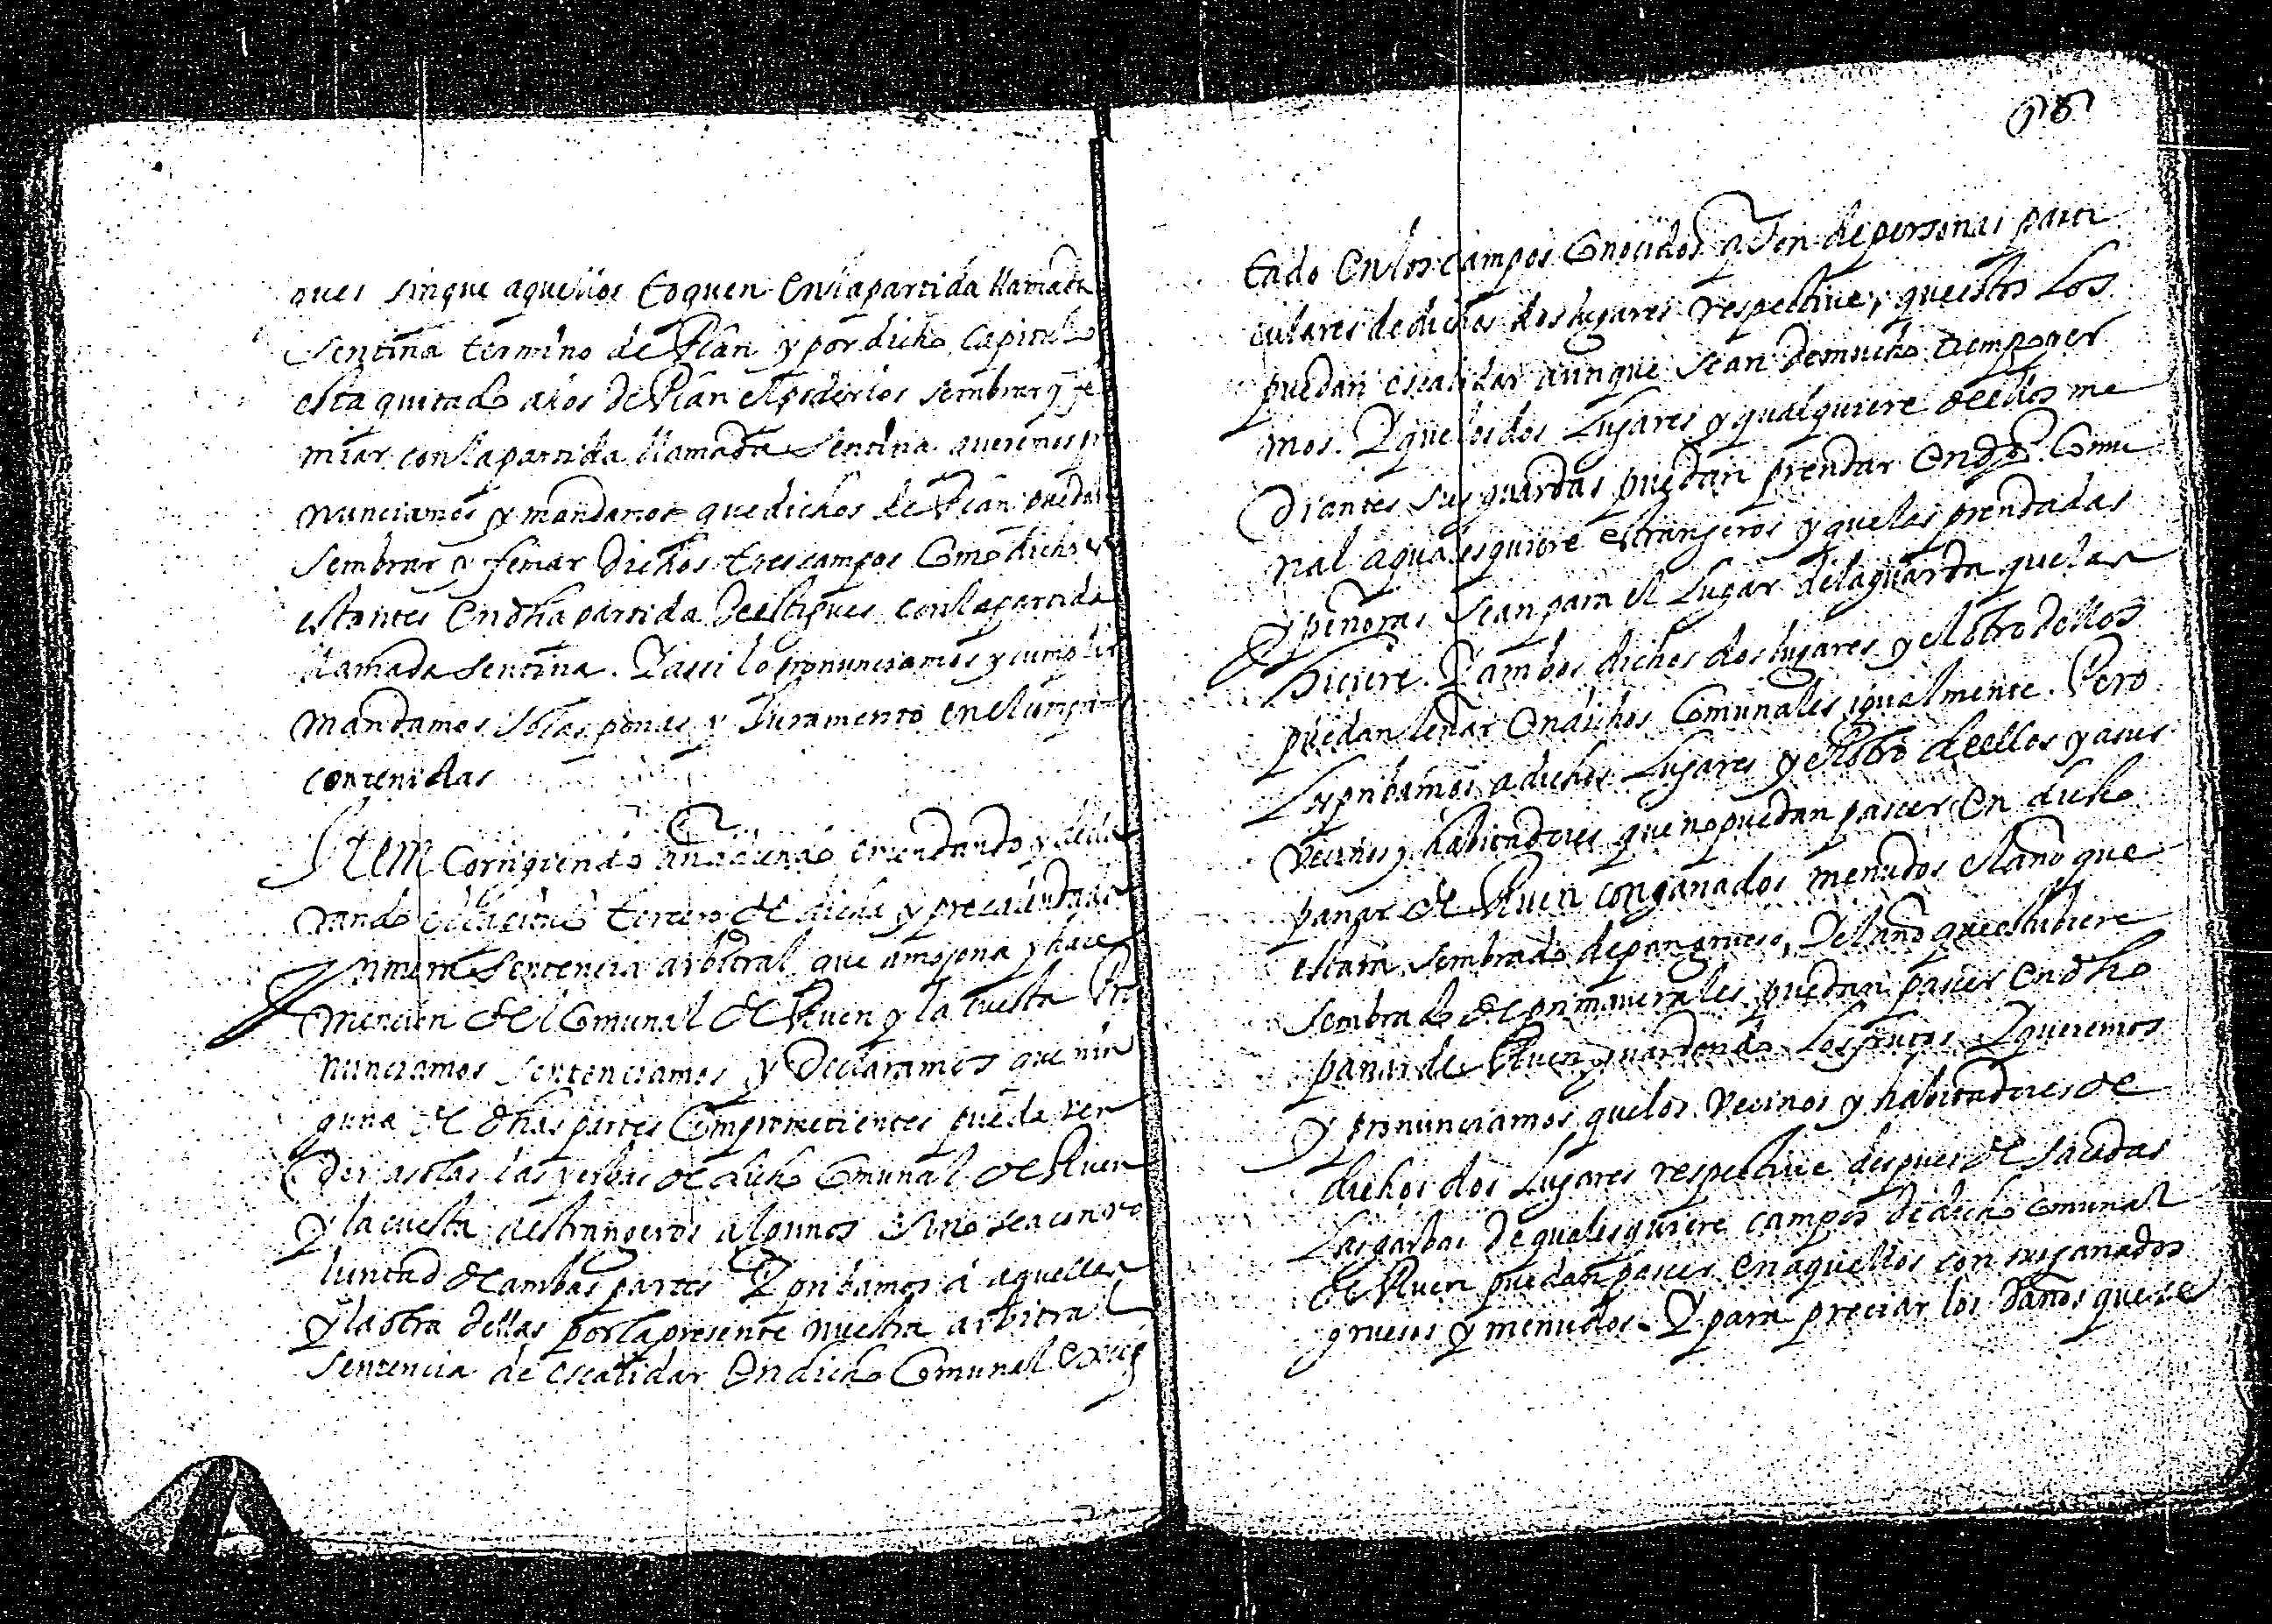 ques sinque aquellos toquen enla partida llamada
sentina termino de Plan y por dicho Capitulo
esta quitado alos de Plan el poderlos sembrar y fe
miar con la partida llamada Sentina queremos pro
nunciamos y mandamos que dichos de Plan puedan
sembrar y femar dichos tres campos como dicho es
estantes en dha partida de estiques con la partida
llamada sentina. Y assi lo pronunciamos y cumplir
mandamos so las penas y Juramento en el compr
contenidas
Item corrigiendo añadiendo emendando y decla
rando el capitulo tercero de dicha y precalendada
nuestra sentencia arbitral que amojona y hace
mencion del Comunal de Ruen y la cuesta Pro
nunciamos sentenciamos y declaramos que nin
guna de dhas partes comprometientes pueda ven
der asolas las yerbas de dicho Comunal de Ruen
y la cuesta a estrangeros algunos sino sea con vo
luntad de ambas partes Y pribamos a aquellas
y la otra dellas por la presente nuestra arbitral
sentencia de escalidar en dicho Comunal excep
tado en los campos conocidos q son de personas parti
culares de dichos dos lugares respective, que estos los
puedan escalidar aunque sean de mucho tiempo yer
mos. Y que los dos Lugares y qualquiere de ellos me
diantes sus guardas puedan prendar en dho Comu
nal a qualesquiere estranjeros y que las prendadas
y penoras sean para el Lugar de la guarda que las
hiciere. Y ambos dichos dos lugares y el otro dellos
puedan leñar en dichos Comunales igualmente. Pero
los pribamos a dichos Lugares y el otro de ellos y a sus
vecinos y habitadores que no puedan pascer en dicho
panar de Ruen con ganados menudos el año que
estara sembrado de pan grueso, Y el año que estubiere
sembrado de primaverales puedan pascer en dho
panar de Ruen guardando los frutos. Y queremos
y pronunciamos que los vecinos y habitadores de
dichos dos Lugares respective despues de sacadas
las garbas de qualesquiere campos de dicho comunal
de Ruen puedan pascer en aquellos con sus ganados
gruesos y menudos. Y para preciar los daños que se